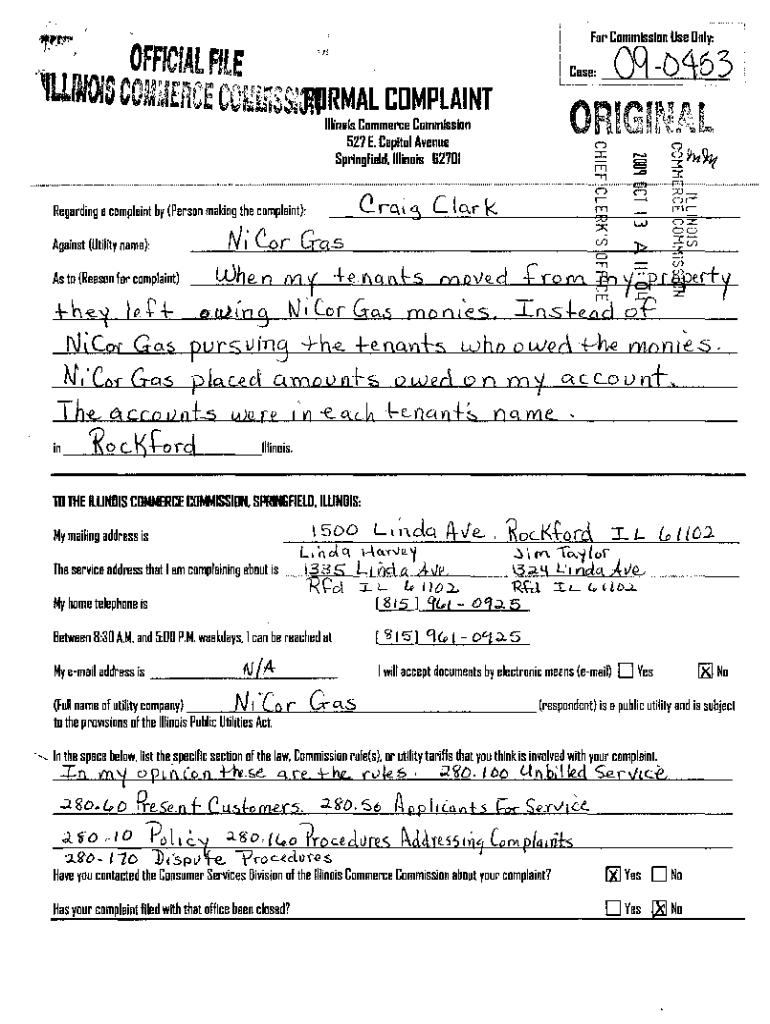 OFFICIAL FILE
ILLINOIS COMMERCE COMMISSION
For Commission Use Only:
Case: 09-0453
FORMAL COMPLAINT
Illinois Commerce Commission
527 E. Capitol Avenue
Springfield, Illinois 62701
ORIGINAL
ILLINOIS
COMMERCE COMMISSION
2009 OCT 13 A 11:04
CHIEF CLERK'S OFFICE
Regarding a complaint by (Person making the complaint): Craig Clark
Against (Utility name): NiCor Gas
As to (Reason for complaint) When my tenants moved from my property
they left owing NiCor Gas monies. Instead of
NiCor Gas pursuing the tenants who owed the monies.
NiCor Gas placed amounts owed on my account.
The accounts were in each tenant's name.
in Rockford Illinois.
TO THE ILLINOIS COMMERCE COMMISSION, SPRINGFIELD, ILLINOIS:
My mailing address is 1500 Linda Ave. Rockford IL 61102
Linda Harvey Jim Taylor
The service address that I am complaining about is 1335 Linda Ave. 1324 Linda Ave
Rfd IL 61102 Rfd IL 61102
My home telephone is [815] 961-0925
Between 8:30 A.M. and 5:00 P.M. weekdays, I can be reached at [815] 961-0925
My e-mail address is N/A I will accept documents by electronic means (e-mail) Yes X No
(Full name of utility company) NiCor Gas (respondent) is a public utility and is subject
to the provisions of the Illinois Public Utilities Act.
In the space below, list the specific section of the law, Commission rule(s), or utility tariffs that you think is involved with your complaint.
In my opinion these are the rules. 280.100 Unbilled Service
280.60 Present Customers. 280.50 Applicants For Service
280.10 Policy 280.160 Procedures Addressing Complaints
280-170 Dispute Procedures
Have you contacted the Consumer Services Division of the Illinois Commerce Commission about your complaint? X Yes No
Has your complaint filed with that office been closed? Yes X No